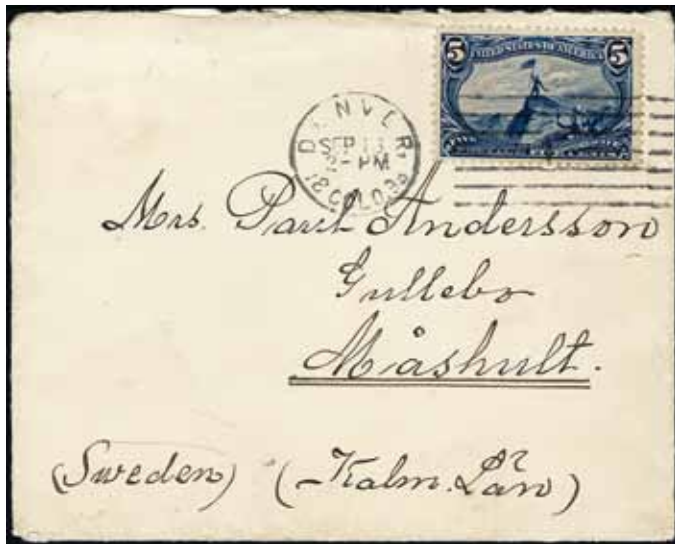 5 UNITED STATES OF AMERICA 5
DENVER
SEP 13
2-PM
COLO. 98
Mrs. Paul Andersson
Gullebo
Måshult.
(Sweden) (Kalm. Län)